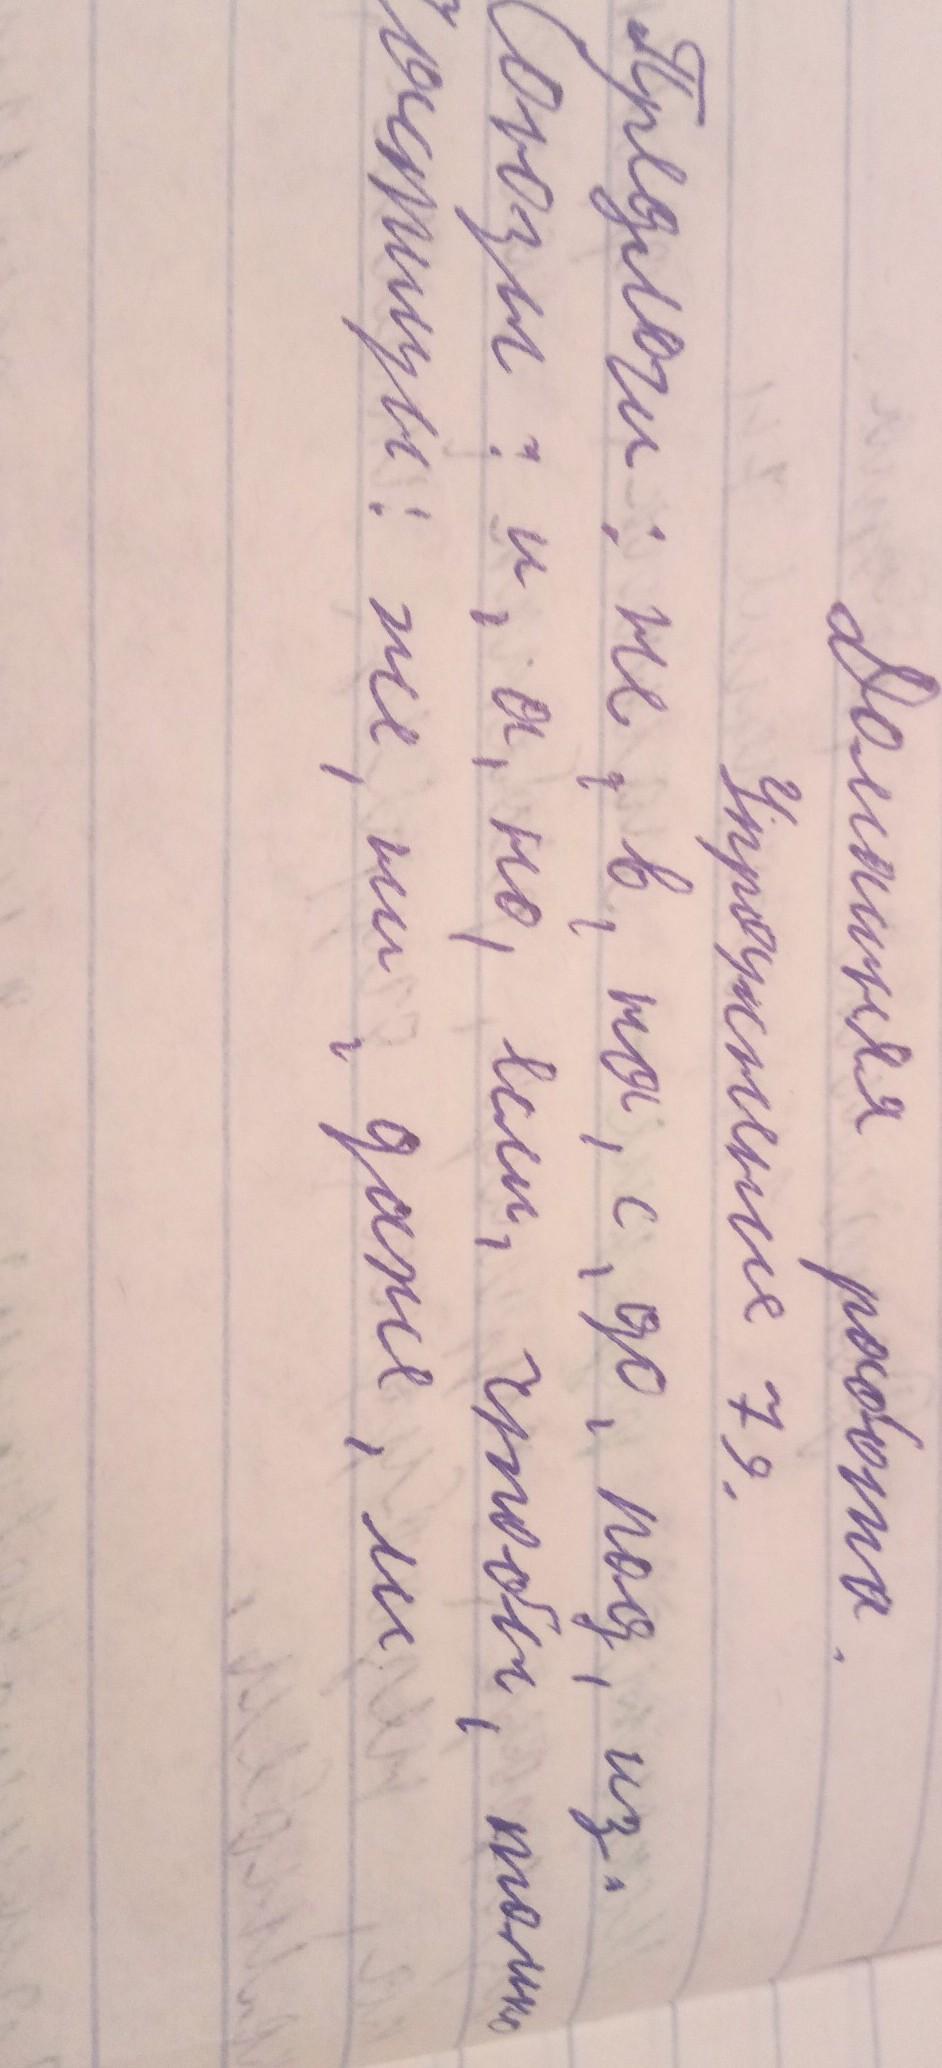 Домашняя работа.
Упражнение 79.
Предлоги: не, в, на, с, до, под, из.
Союзы: и, а, но, если, чтобы, только
Частицы: же, ни, даже, ли